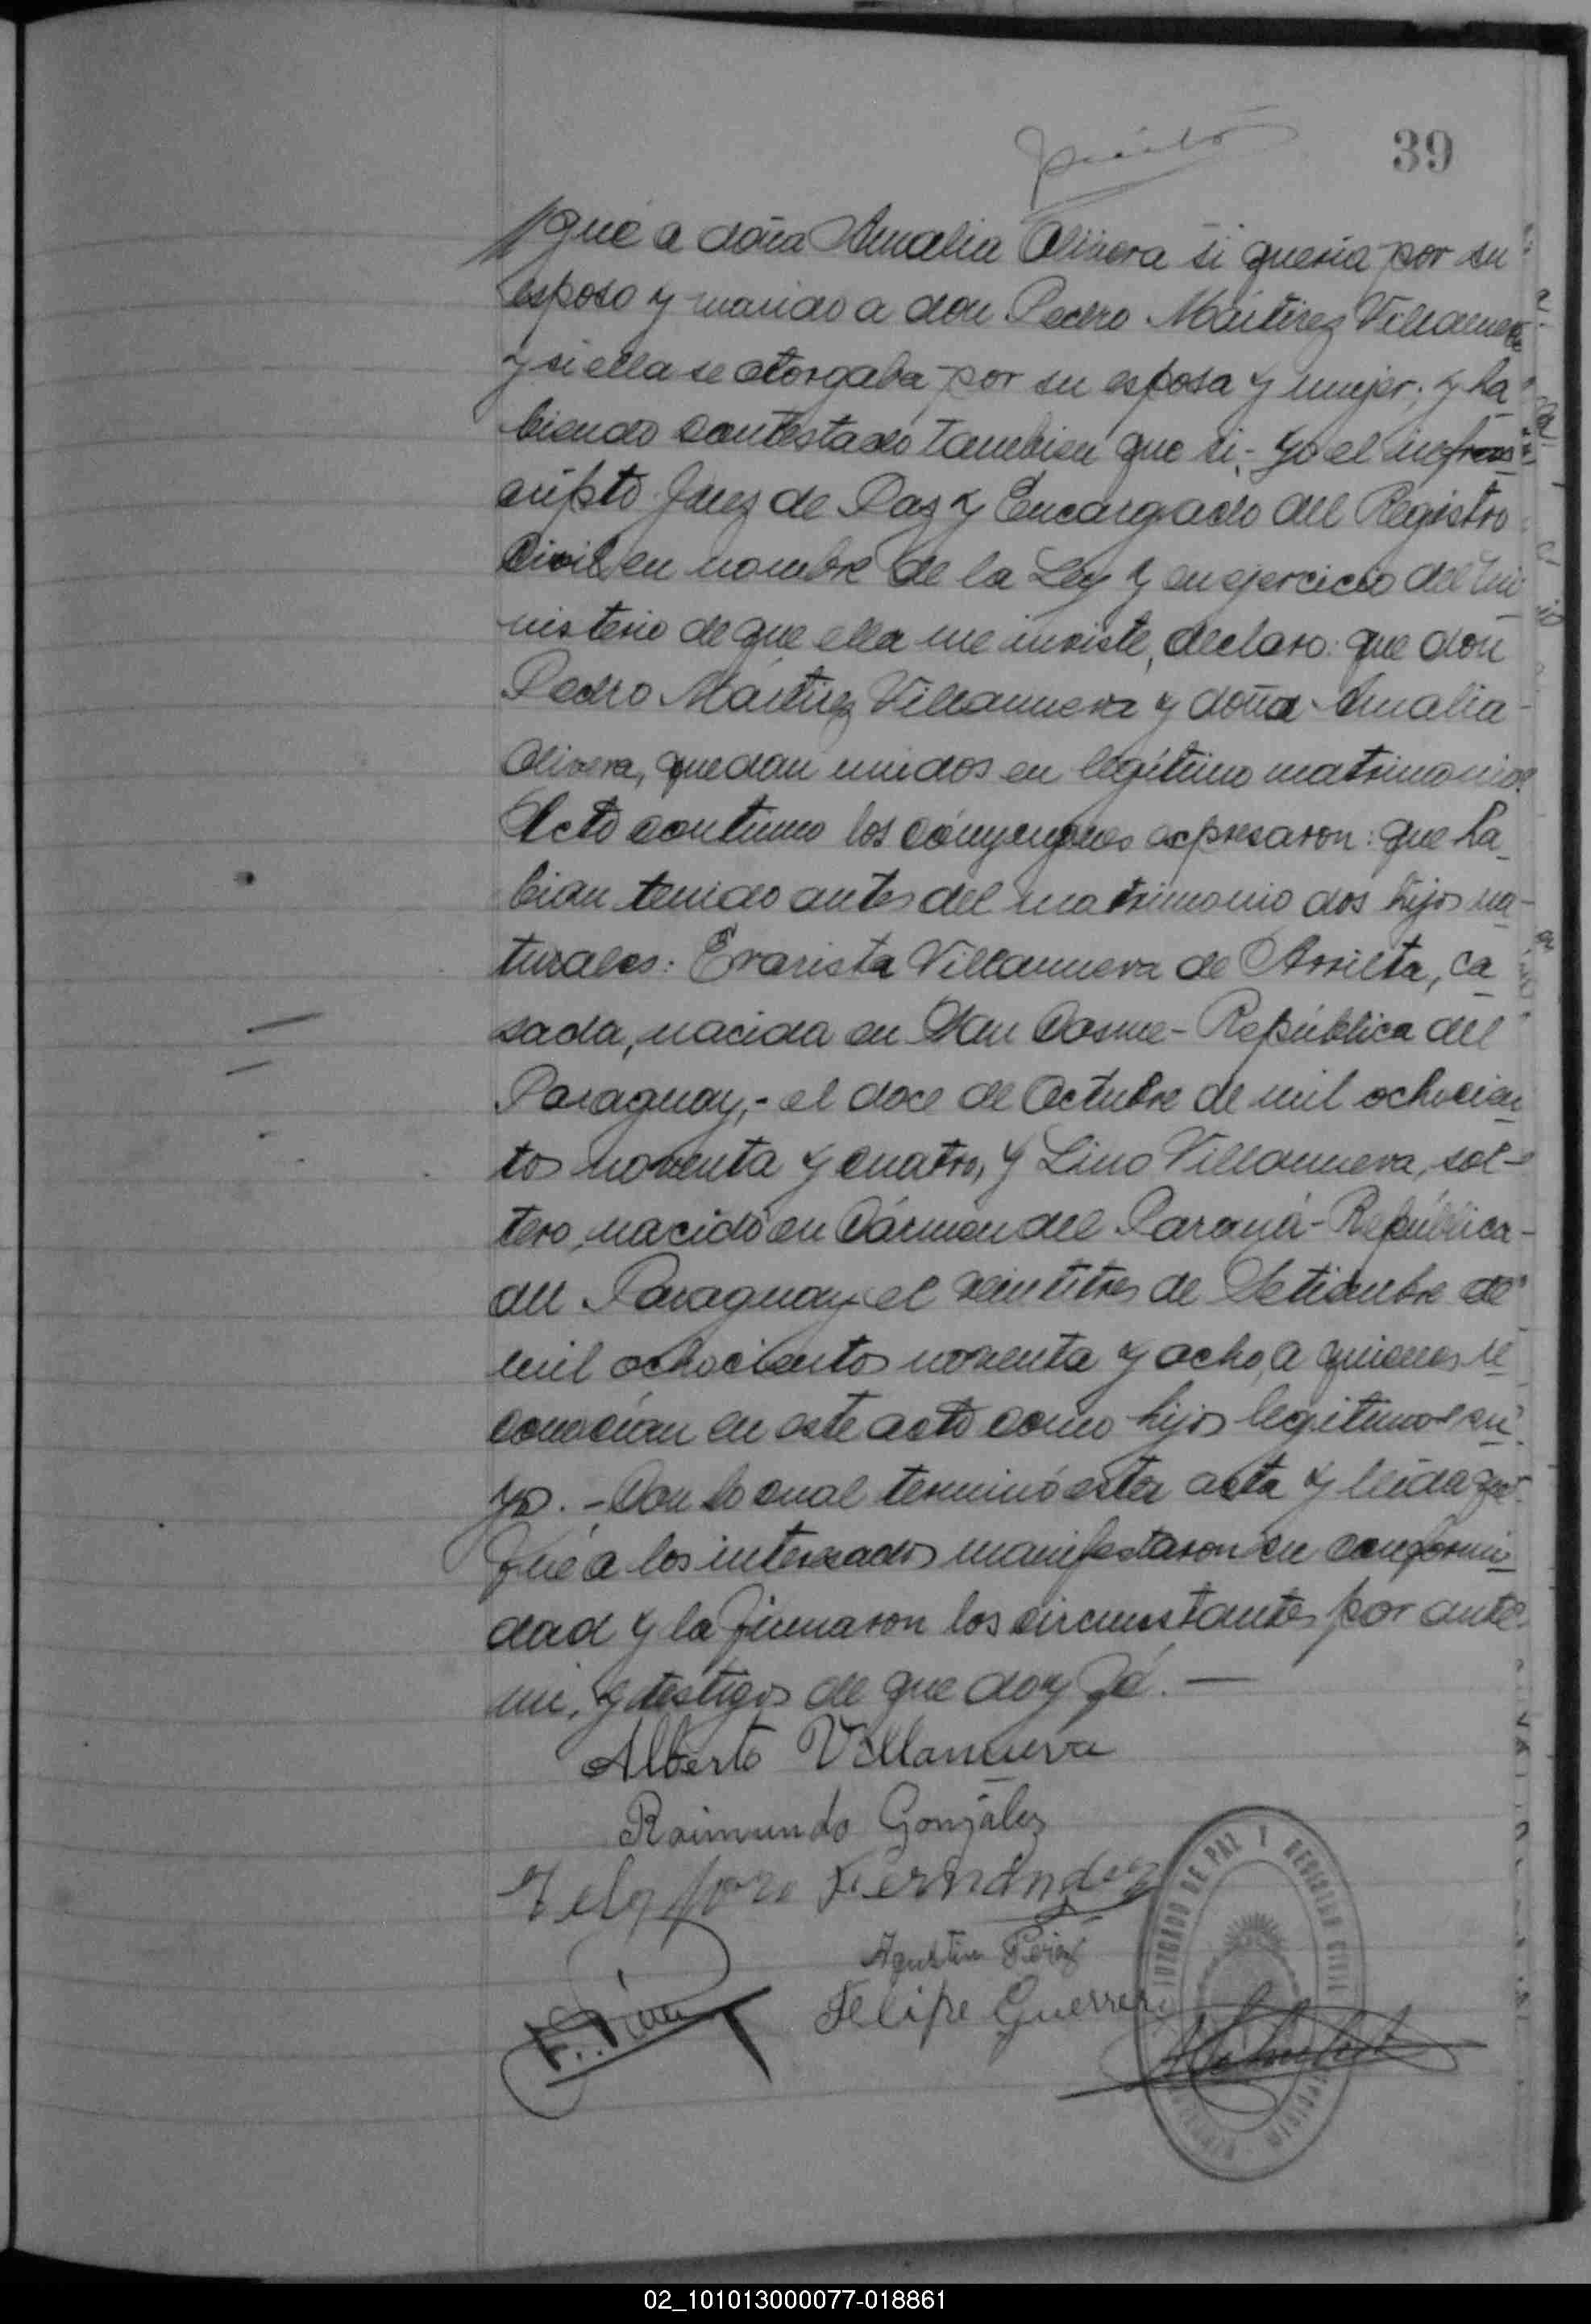 39
gué a doña Amalia Olivera si quería por su
esposo y marido a don Pedro Mártirez Villanueva
y si ella se otorgaba por su esposa y mujer; y ha_
biendo contestado tambien que si.- yo el infras_
cripto Juez de Paz y Encargado del Registro
Civil en nombre de la Ley y en ejercicio del mi_
nisterio de que ella me inviste, declaro: que don
Pedro Mártirez Villanueva y doña Amalia
Olivera, quedan unidos en legítimo matrimonio.
Acto contínuo los cónyuges expresaron: que ha_
bian tenido antes del matrimonio dos hijos na_
turales: Evarista Villanueva de Arrieta, ca_
sada, nacida en San Cosme - República del
Paraguay,- el doce de Octubre de mil ochocien_
tos noventa y cuatro, y Lino Villanueva, sol-
tero, nacido en Cármen del Paraná - República-
del Paraguay el veintitres de Setiembre de
mil ochocientos noventa y ocho, a quienes re_
conocían en este acto como hijos legitimos su_
yos. - Con lo cual terminó esta acta y leída que
fué a los interesados manifestaron su conformi_
dad y la firmaron los circunstantes por ante
mi, y testigos de que doy fé. —
Alberto Villanueva
Raimundo González
Telesforo Fernández
Agustin
Felipe Guerrero
JUZGADO DE PAZ Y REGISTRO CIVIL
02_101013000077-018861